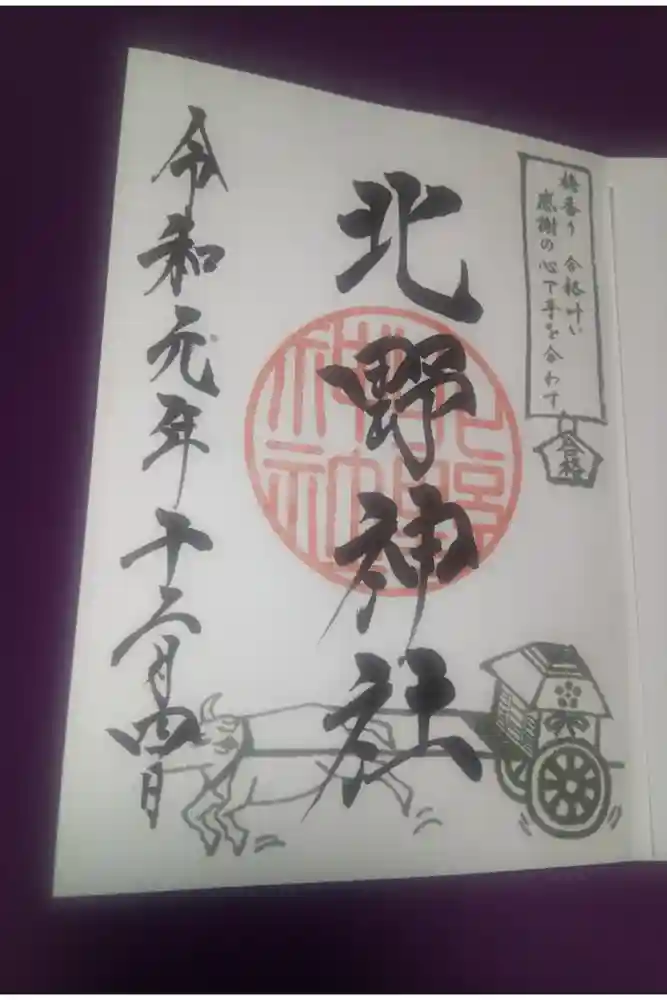 梅香り 合格叶い
感謝の心で手を合わす
合格
北野神社
北野
神社
令和元年十二月四日